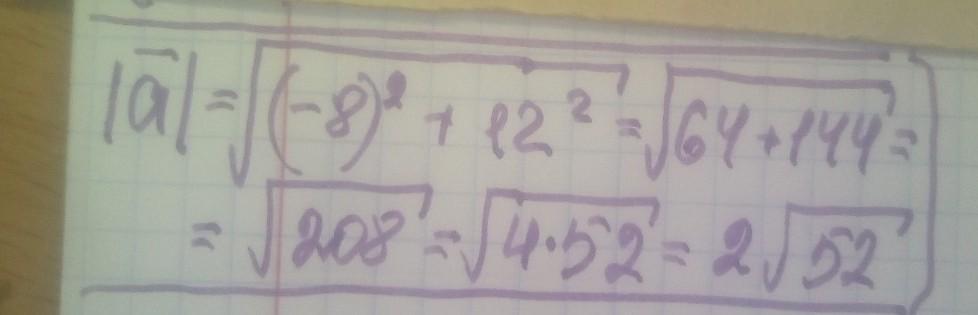 |a̅| = √((-8)² + 12²) = √(64+144) =
= √208 = √(4·52) = 2√52